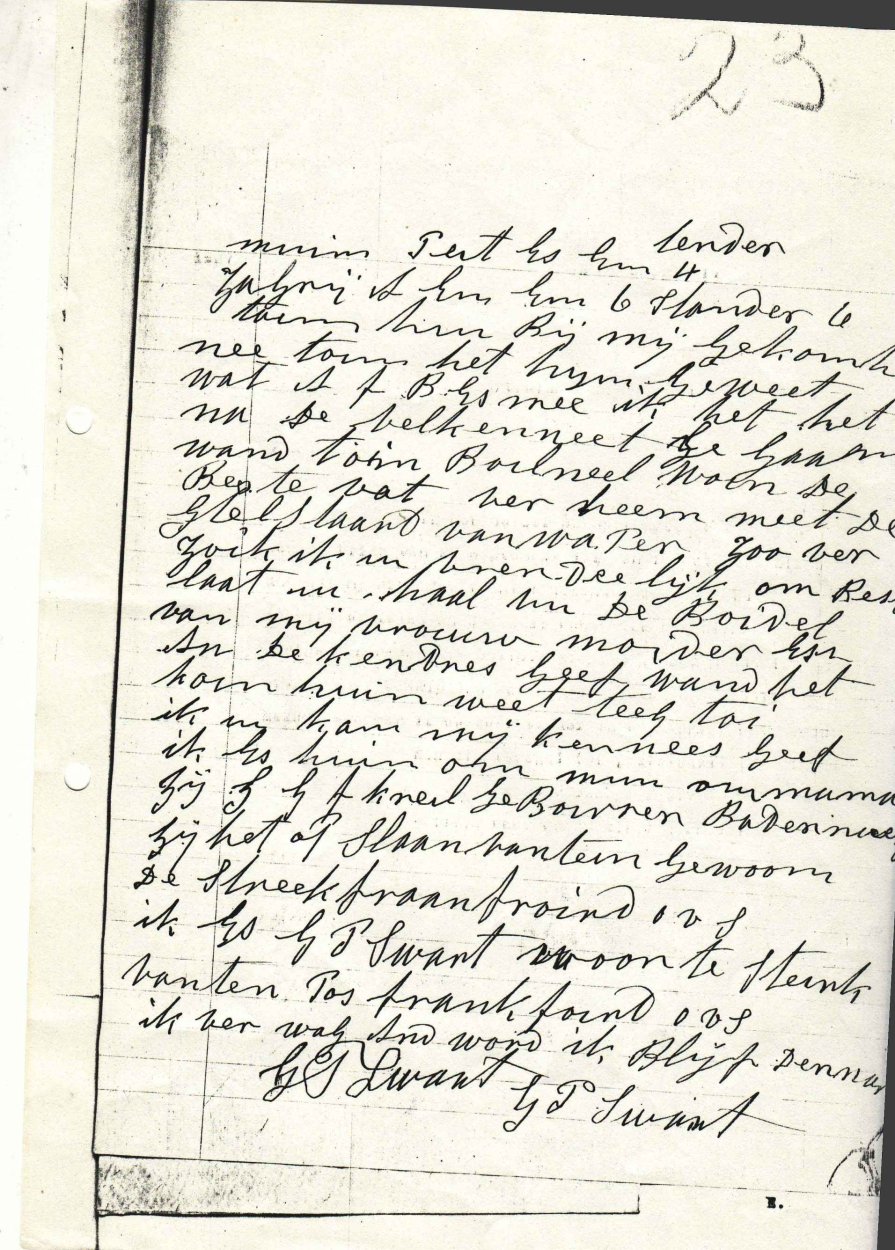 23
muin Peit Es Em tender
4
Em Em 6 Stander 6
toin hun Bij mij Gekomh
nee toin het hun Geweet
wat A f B Es mee ik het het
na De velkenneet Ge Gaan
wand toin Boilneel Woin De
Begte vat ver heem meet De
Stelstaand van wa Per Zoo ver
Zoik ik u vren Dee lijk om Bes
laat u haal un De Boidel
van mij vrouw moider Esn
An De kendres Geef wand het
koin huin weet teeg toi
ik u kan mij kennees Geef
ik Es huin om mun ommama
Zij G G f kreil GeBoirren
Zij het of Slaan vantein Gewoon
De Streek fraanfroird o v s
ik Es G P Swart woon te Steink
vanten Pos frankfoird o v s
ik ver wag And word ik Blijf Dennar
G P Swart
G P Swart
E.